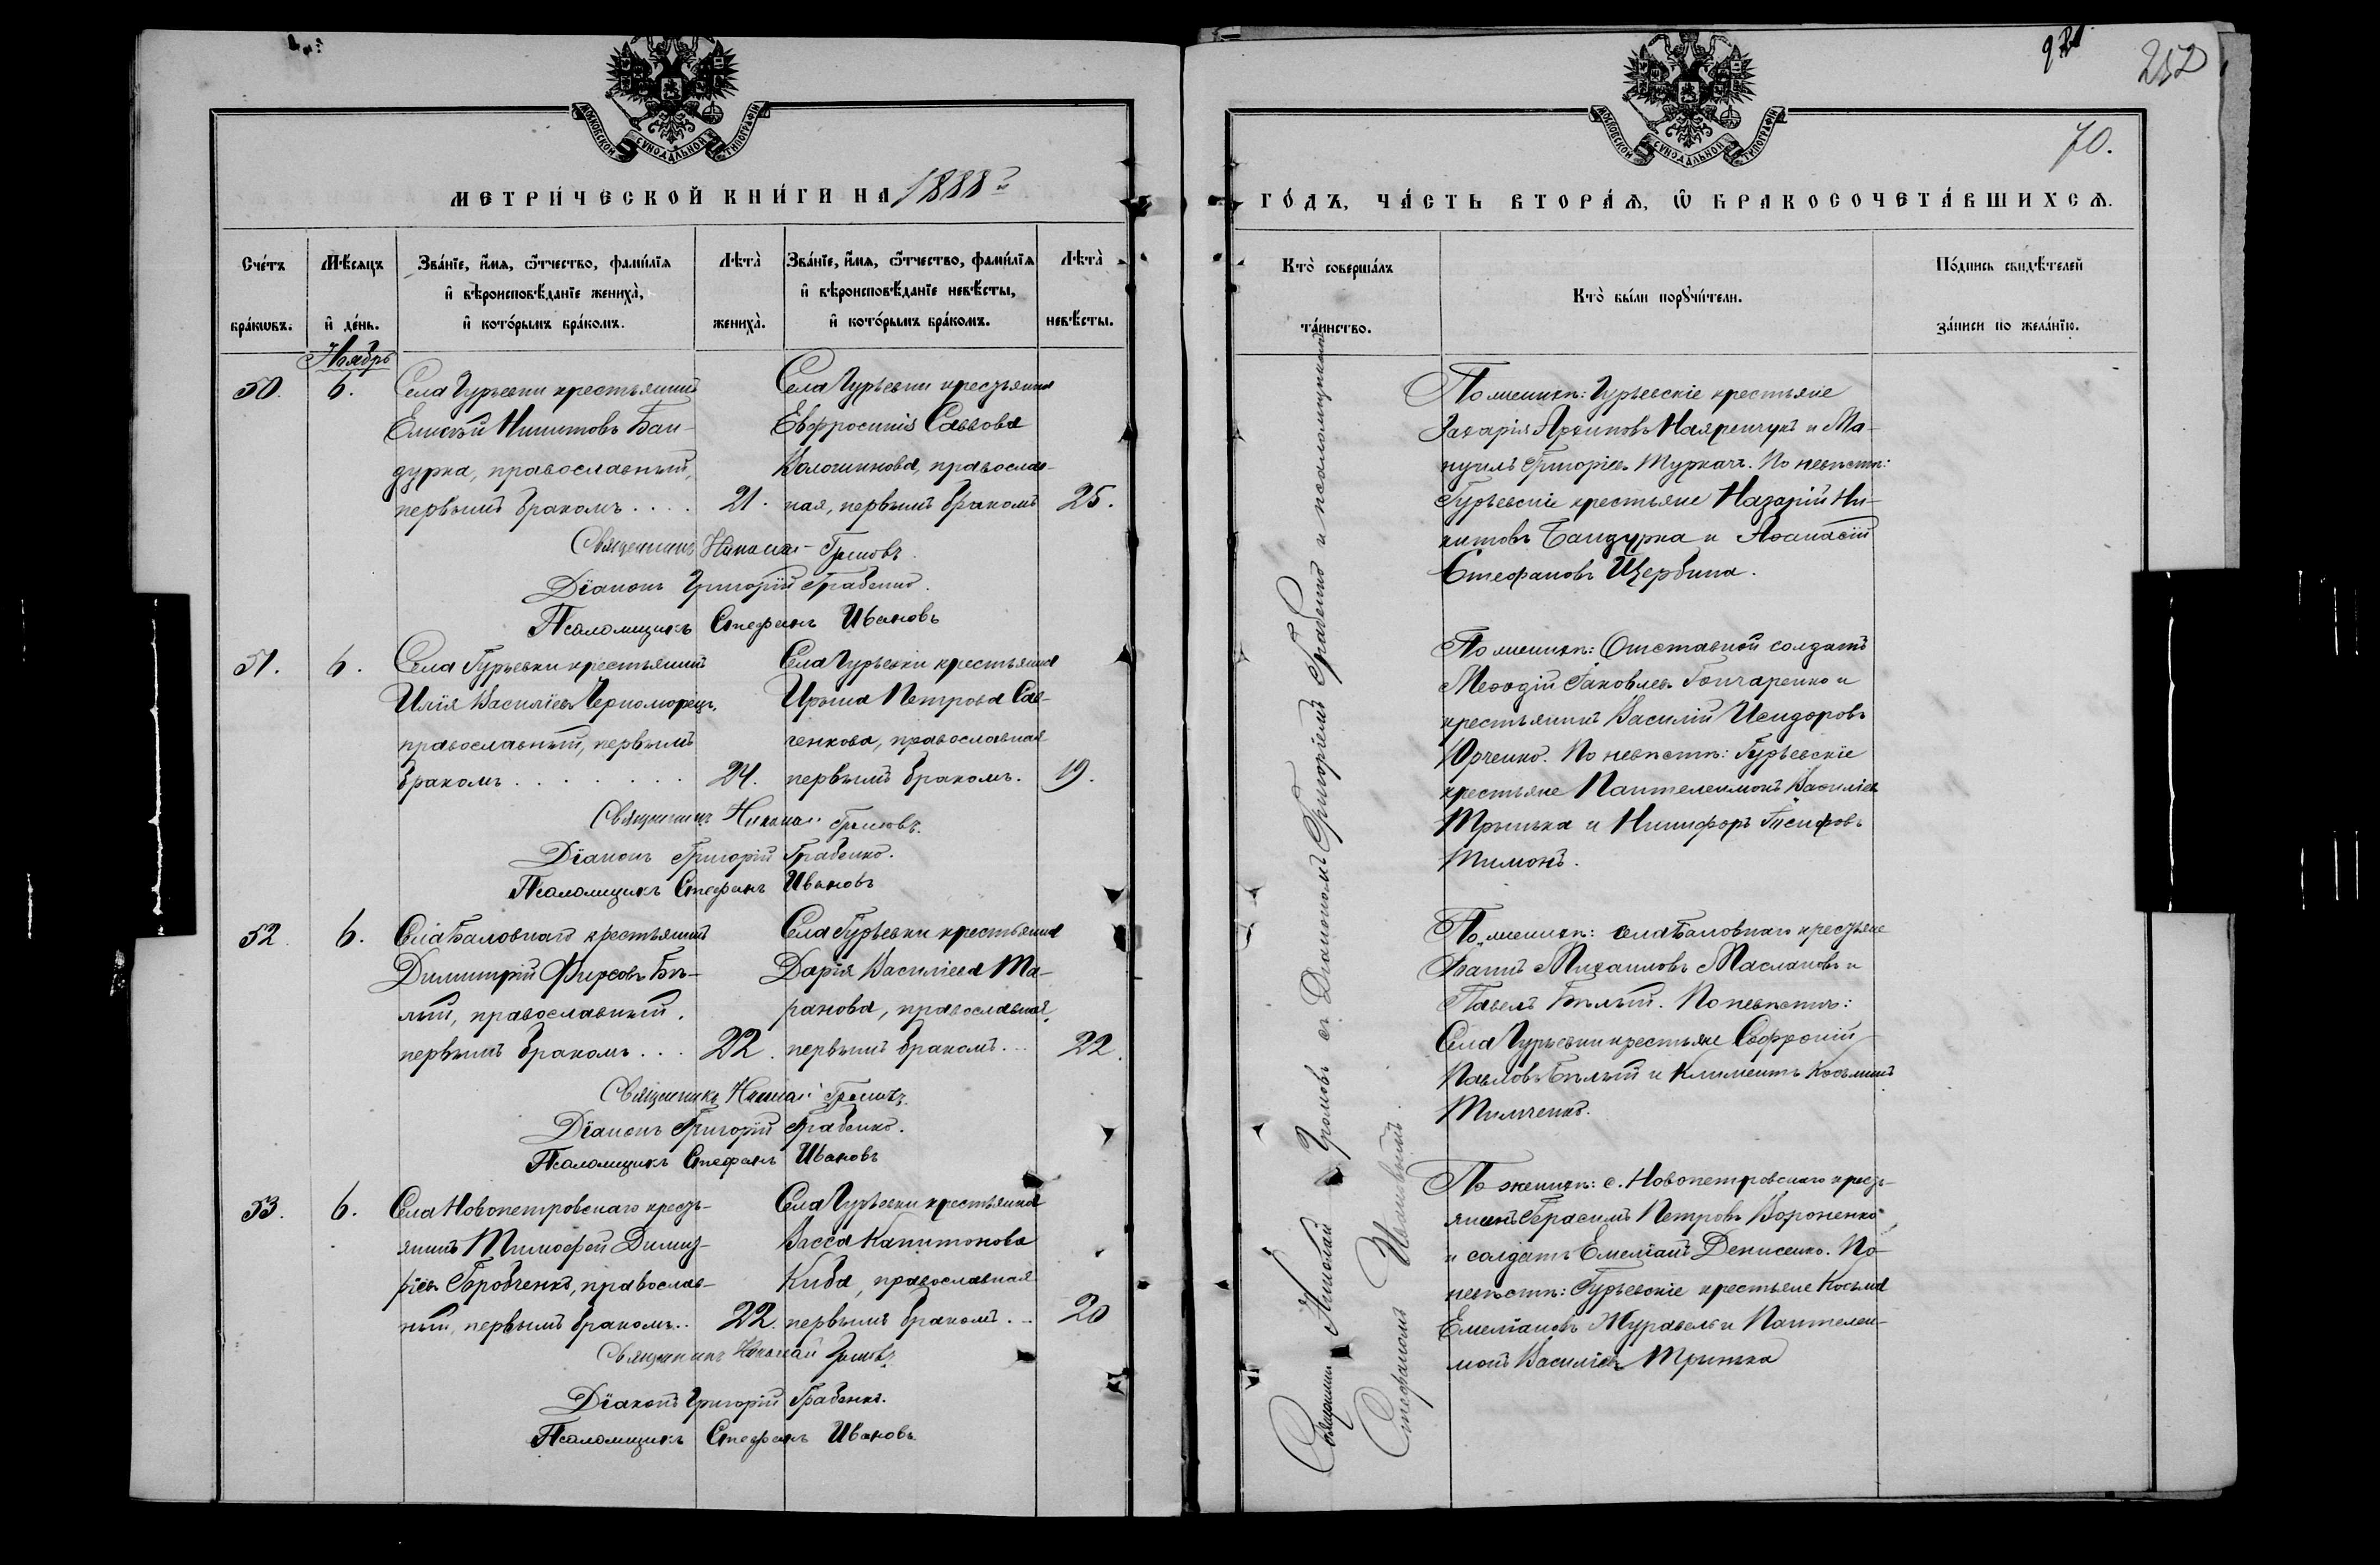 МОСКОВСКОЙ СѴНОДАЛЬНОЙ ТИПОГРАФІИ
МЕТРИ́ЧЕСКОЙ КНИ́ГИ НА 1888й
Сче́тъ бра́кωвъ.
Мѣ́сяцъ и҆ де́нь.
Зва́нїе, и҆́мя, ѻ҆́тчество, фами́лїя
и҆ вѣроисповѣ́данїе жениха̀,
и҆ кото́рымъ бра́комъ.
Лѣта̀ жениха̀.
Зва́нїе, и҆́мя, ѻ҆́тчество, фами́лїя
и҆ вѣроисповѣ́данїе невѣ́сты,
и҆ кото́рымъ бра́комъ.
Лѣта̀ невѣ́сты.
Ноябрь
50. 6.
Села Гурьевки крестьянинъ
Елисей Никитовъ Бан-
дурка, православный,
первымъ бракомъ . . . . 21.
Села Гурьевки крестьянка
Евфросинія Саввова
Волошинова, православ-
ная, первымъ бракомъ 25.
Священникъ Николай Громовъ.
Діаконъ Григорій Грабенко.
Псаломщикъ Стефанъ Ивановъ
51. 6.
Села Гурьевки крестьянинъ
Илія Василіевъ Черноморецъ,
православный, первымъ
бракомъ . . . . . . . 24.
Села Гурьевки крестьянка
Ирина Петрова Сав-
ченкова, православная
первымъ бракомъ. 19.
Священникъ Николай Громовъ.
Діаконъ Григорій Грабенко.
Псаломщикъ Стефанъ Ивановъ
52. 6.
Села Баловнаго крестьянинъ
Димитрій Фирсовъ Бѣ-
лый, православный,
первымъ бракомъ . . . 22.
Села Гурьевки крестьянка
Дарія Василіева Ма-
ранова, православная,
первымъ бракомъ . . . 22.
Священникъ Николай Громовъ.
Діаконъ Григорій Грабенко.
Псаломщикъ Стефанъ Ивановъ
53. 6.
Села Новопетровскаго кресть-
янинъ Тимофей Димит-
ріевъ Боровченко, православ-
ный, первымъ бракомъ . . 22.
Села Гурьевки крестьянка
Васса Капитонова
Киба, православная
первымъ бракомъ . . . 20
Священникъ Николай Громовъ.
Діаконъ Григорій Грабенко.
Псаломщикъ Стефанъ Ивановъ
252
70.
МОСКОВСКОЙ СѴНОДАЛЬНОЙ ТИПОГРАФІИ
ГО́ДЪ, ЧА́СТЬ ВТОРА́Ѧ, Ѡ҆ БРАКОСОЧЕТА́ВШИХСѦ.
Кто̀ соверша́лъ
та́инство.
Кто̀ бы́ли порꙋчи́тели.
По́дпись свидѣ́телей
за́писи по жела́нїю.
Священникъ Николай Громовъ съ Діакономъ Григоріемъ Грабенко и псаломщикомъ
Стефаномъ Ивановымъ.
По женихѣ: Гурьевскіе крестьяне
Захарія Архиповъ Назаренчукъ и Ма-
нуилъ Григоріевъ Туркачъ. По невѣстѣ:
Гурьевскіе крестьяне Назарій Ни-
китовъ Бандурка и Аѳанасій
Стефановъ Щербина.
По женихѣ: Отставной солдатъ
Меѳодій Іаковлевъ Гончаренко и
крестьянинъ Василій Исидоровъ
Юрченко. По невѣстѣ: Гурьевскіе
крестьяне Пантелеимонъ Василіевъ
Тринька и Никифоръ Іосифовъ
Тимонъ.
По женихѣ: села Баловнаго крестьяне
Іоаннъ Михаиловъ Маслаковъ и
Павелъ Бѣлый. По невѣстѣ:
Села Гурьевки крестьяне Софроній
Павловъ Бѣлый и Климентъ Косьминъ
Тимченко.
По женихѣ: с. Новопетровскаго кресть-
янинъ Герасимъ Петровъ Вороненко
и солдатъ Емеліанъ Денисенко. По
невѣстѣ: Гурьевскіе крестьяне Косьма
Емеліановъ Журавель и Пантелеи-
монъ Василіевъ Тринька